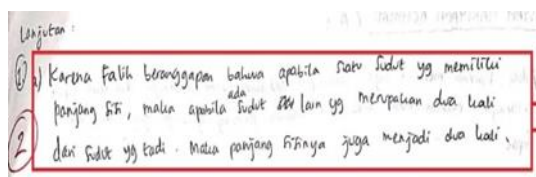 Lanjutan :
① a) Karena Falih beranggapan bahwa apabila satu sudut yg memiliki
panjang sisi, maka apabila ada sudut lain yg merupakan dua kali
② dari sudut yg tadi. Maka panjang sisinya juga menjadi dua kali.